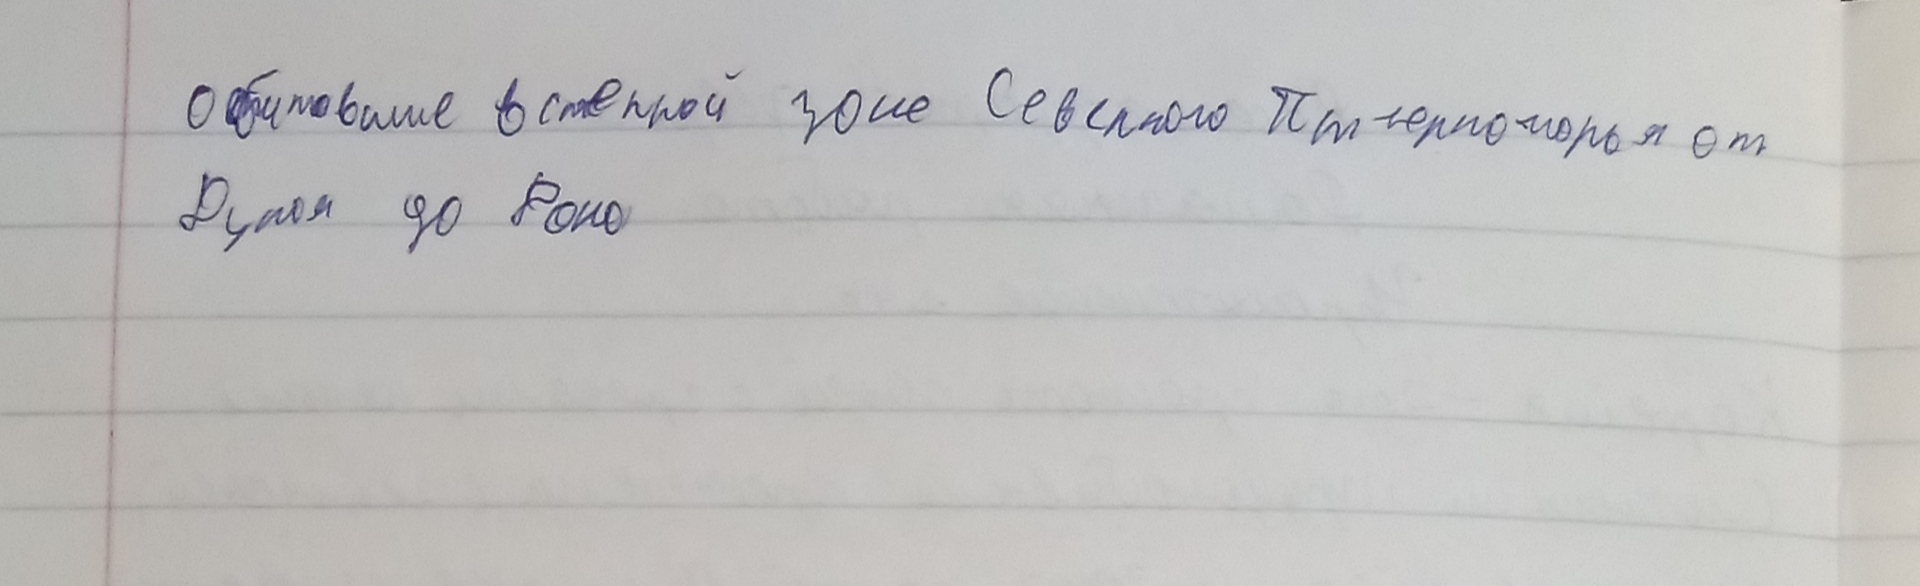 Обитавшие в степной зоне Северного Причерноморья от
Дуная до Дона